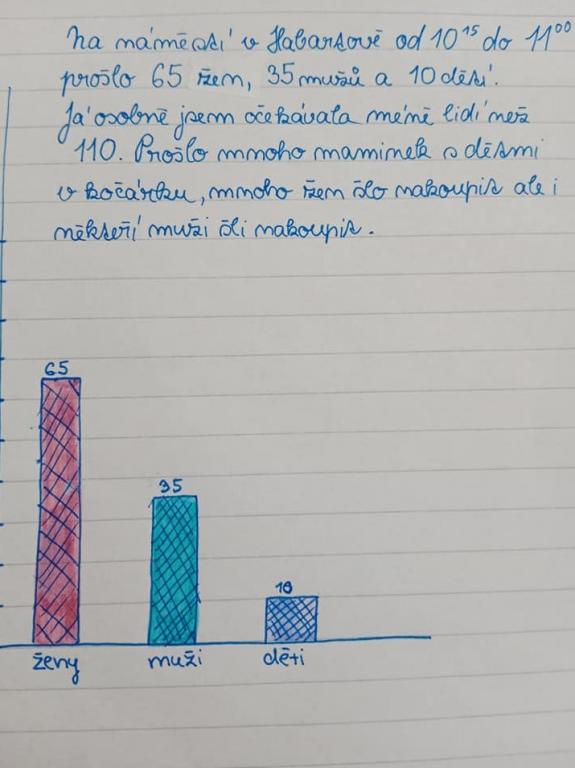 Na náměstí v Habartově od 10¹⁵ do 11⁰⁰
prošlo 65 žen, 35 mužů a 10 dětí.
Já osobně jsem očekávala méně lidí než
110. Prošlo mnoho maminek s dětmi
v kočárku, mnoho žen šlo nakoupit ale i
někteří muži šli nakoupit.
65
35
10
ženy muži děti